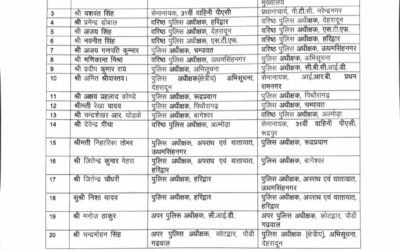 मुख्यालय
3 श्री यशवंत सिंह सेनानायक, 31वीं वाहिनी पीएसी प्रधानाचार्य, पी.टी.सी. नरेन्द्रनगर
4 श्री प्रमेन्द्र डोबाल वरिष्ठ पुलिस अधीक्षक, हरिद्वार वरिष्ठ पुलिस अधीक्षक, देहरादून
5 श्री अजय सिंह वरिष्ठ पुलिस अधीक्षक, देहरादून वरिष्ठ पुलिस अधीक्षक, एस.टी.एफ.
6 श्री नवनीत सिंह वरिष्ठ पुलिस अधीक्षक, एस.टी.एफ. वरिष्ठ पुलिस अधीक्षक, हरिद्वार
7 श्री अजय गणपति कुम्भार पुलिस अधीक्षक, चम्पावत वरिष्ठ पुलिस अधीक्षक, उधमसिंहनगर
8 श्री मणिकान्त मिश्रा वरिष्ठ पुलिस अधीक्षक, उधमसिंहनगर पुलिस अधीक्षक, अभिसूचना
9 श्री प्रदीप कुमार राय पुलिस अधीक्षक, अभिसूचना पुलिस अधीक्षक, सी.बी.सी.आई.डी.
10 श्री अमित श्रीवास्तव I पुलिस अधीक्षक(क्षेत्रीय) अभिसूचना, सेनानायक, आई.आर.बी. प्रथम
देहरादून रामनगर
11 श्री अक्षय प्रहलाद कोण्डे पुलिस अधीक्षक, रूद्रप्रयाग पुलिस अधीक्षक, पिथौरागढ़
12 श्रीमती रेखा यादव पुलिस अधीक्षक, पिथौरागढ़ पुलिस अधीक्षक, चम्पावत
13 श्री चन्द्रशेखर आर. घोड़के पुलिस अधीक्षक, बागेश्वर वरिष्ठ पुलिस अधीक्षक, अल्मोड़ा
14 श्री देवेन्द्र पींचा वरिष्ठ पुलिस अधीक्षक, अल्मोड़ा सेनानायक, 31वीं वाहिनी पीएसी,
रूद्रपुर
15 श्रीमती निहारिका तोमर पुलिस अधीक्षक, अपराध एवं यातायात, पुलिस अधीक्षक, रूद्रप्रयाग
उधमसिंहनगर
16 श्री जितेन्द्र कुमार मेहरा पुलिस अधीक्षक, अपराध एवं यातायात, पुलिस अधीक्षक, बागेश्वर
हरिद्वार
17 श्री जितेन्द्र चौधरी पुलिस अधीक्षक, हरिद्वार पुलिस अधीक्षक, अपराध एवं यातायात,
उधमसिंहनगर
18 सुश्री निशा यादव पुलिस अधीक्षक, हरिद्वार पुलिस अधीक्षक, अपराध एवं यातायात,
हरिद्वार
19 श्री मनोज ठाकुर अपर पुलिस अधीक्षक, सी.आई.डी. अपर पुलिस अधीक्षक, कोटद्वार, पौड़ी
गढ़वाल
20 श्री चन्द्रमोहन सिंह अपर पुलिस अधीक्षक, कोटद्वार, पौड़ी पुलिस अधीक्षक (क्षेत्रीय), अभिसूचना,
गढ़वाल देहरादून